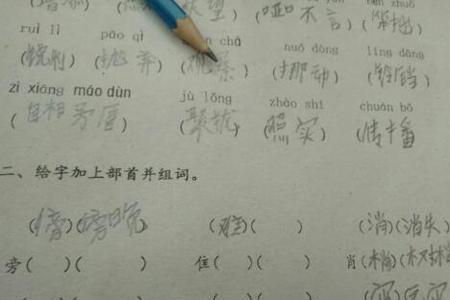 (哑不言)
ruì lì pāo qì chá nuó dòng líng dāng
(锐利) (抛弃) (观察) (挪动) (铃铛)
zì xiāng máo dùn jù lǒng zhào shí chuán bō
(自相矛盾) (聚拢) (照实) (传播)
二、给字加上部首并组词。
(傍)(傍晚) (难)( ) (消)(消失)
旁( )( ) 隹( )( ) 肖(梢)(树梢